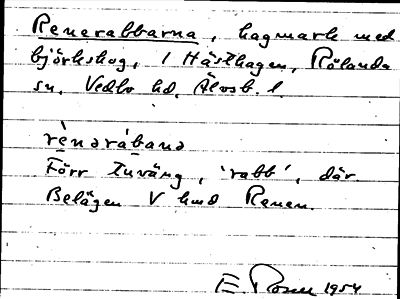 Renerabbarna, hagmark med
björkskog, i Hästhagen, Rölanda
sn, Vedbo hd, Älvsb. l.
rènərábanə
Förr tuväng, 'rabb', där
Belägen V hmd Renen.
E. Rosen 1954